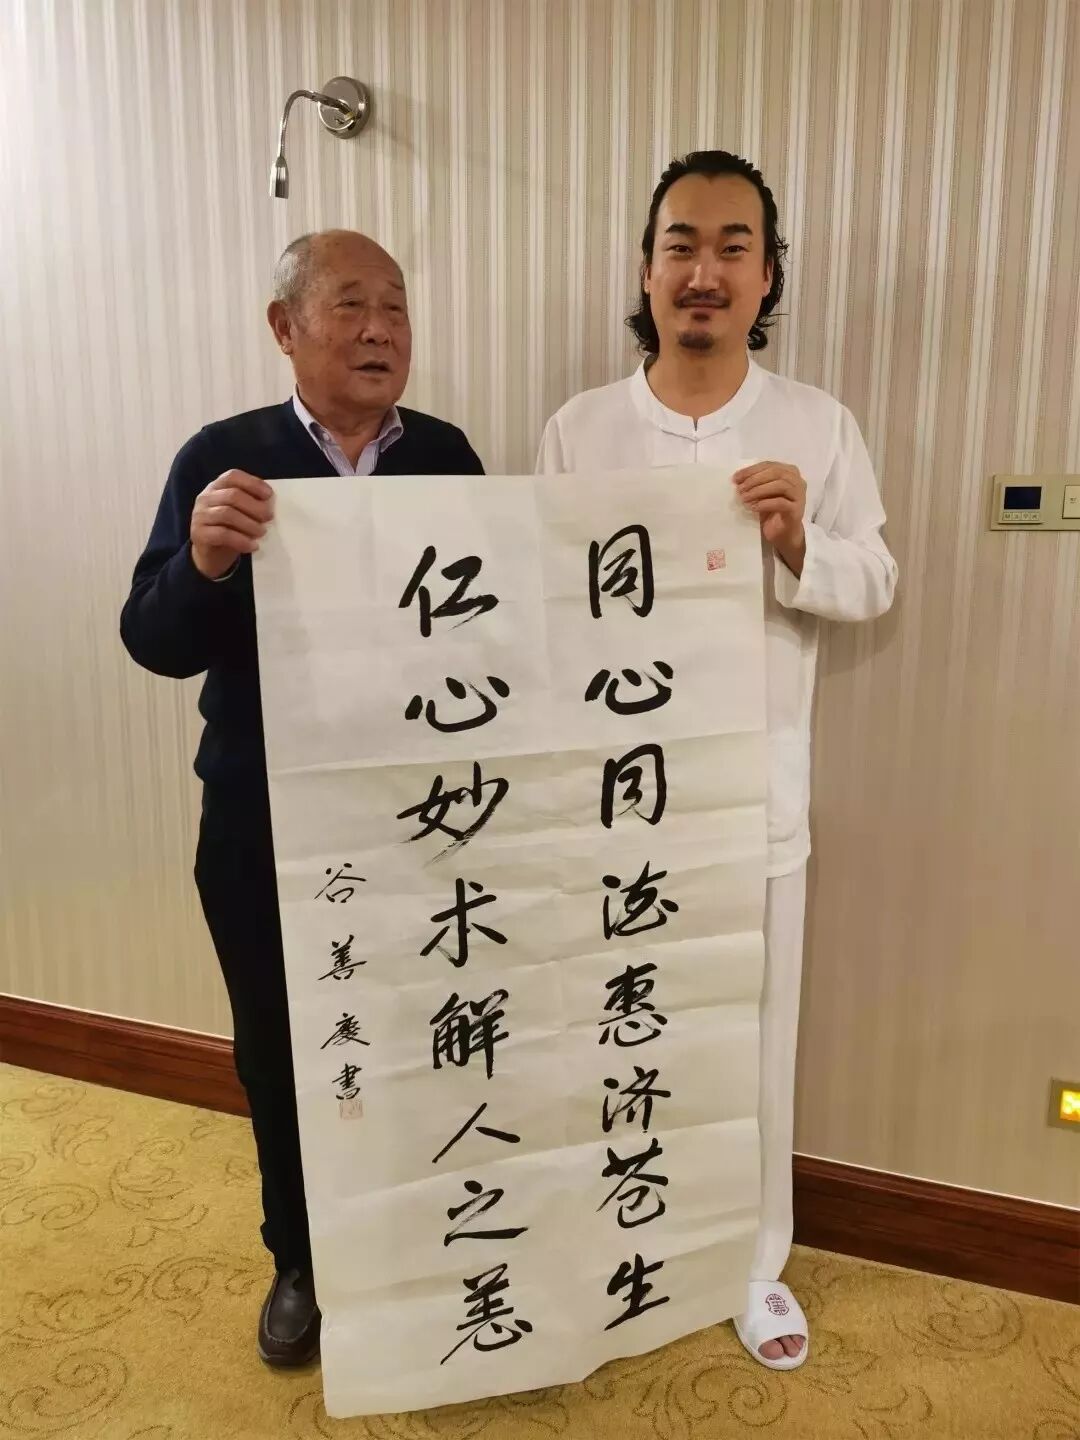 同心同德惠济苍生
仁心妙术解人之恙
谷善庆書